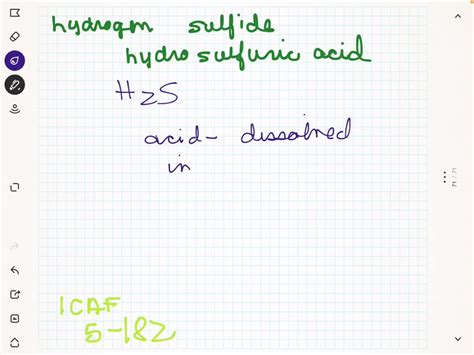 hydrogen sulfide
hydrosulfuric acid
H2S
acid- dissolved
in
ICAF
5-182